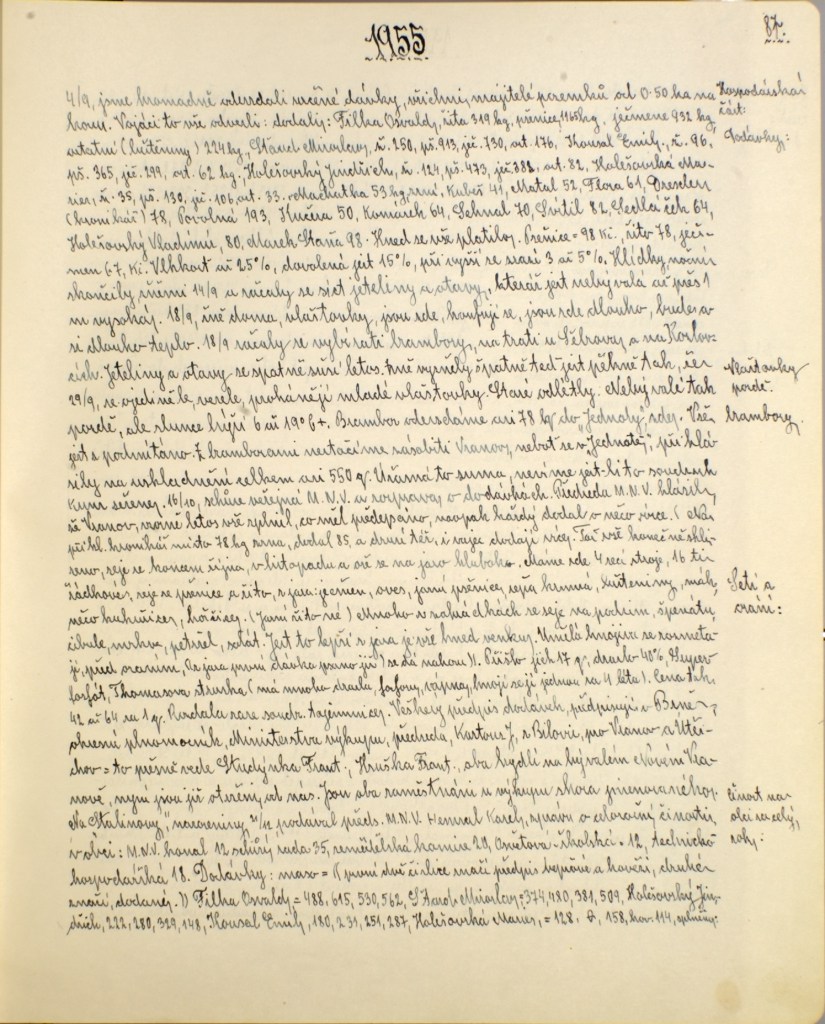 1955
87.
4/9, jsme hromadně odevzdali určené dávky, všichni, majitelé pozemků od 0.50 ha na
Hospodářská
horu. Vojáci to vše odvezli: dodali: Filka Osvald, žita 319 kg, pšenice, 1165 kg, ječmene 932 kg,
část:
ostatní (luštěniny) 224 kg, Stand Miroslav, ž. 250, pš. 913, ječ. 730, ost. 176, Kousal Emil, ž. 96,
Dodávky:
pš. 365, ječ. 299, ost. 62 kg, Holešovský Jindřich, ž. 124, pš. 473, ječ. 382, ost. 82, Holešovská Ma-
rie, ž. 35, pš. 130, ječ. 106, ost. 33. Machatka 53 kg, zrní, Kubeš 41, Matal 52, Flora 61, Drescler
(kronikář) 78, Povolná 193, Kučera 50, Komárek 64, Sehnal 70, Svítil 82, Sedláček 64,
Holešovský Vladimír, 80, Marek Stan. 98. Hned se vše platilo. Pšenice = 98 Kč, žito 78, ječ-
men 67, Kč. Vlhkost až 25%, dovolená jest 15%, při vyšší se sráží 3 až 5%. Hlídky, noční
skončily žněmi 14/9 a začaly se síct jeteliny a otavy, která jest nebývalá až přes 1
m vysoká. 18/9, žně doma, vlaštovky, jsou zde, houfují se, jsou zde dlouho, bude a-
si dlouho teplo. 18/9 začaly se vybírati brambory, na trati u Sébrava, a na Kozlov-
cích. Jeteliny a otavy se špatně suší letos. Žně vyšly špatně teď jest pěkně tak, že
29/9, se ojediněle, vesele, prohánějí mladé vlaštovky. Staré odletly. Nebývalé tak
Vlaštovky
pozdě, ale slunce hýří 6 až 19° C +. Brambor odevzdáme asi 78 kg do „Jednoty", zdej. Vše
pozdě.
brambory.
jest s podmítáno. Z bramborami nestačíme zásobiti Vranov, neboť se v „Jednotě", přihlá-
sily na uskladnění celkem asi 550 q. Úžasná to suma, nevíme jest-li to soudruh
seženou. 16/10, schůze veřejná M.N.V. a rozprava, o dodávkách. Předseda M.N.V. hlásil,
že Vranov, rovně letos vše splnil, co měl předepsáno, naopak každý dodal o něco více. (Na
příkl. kronikář místo 78 kg zrna, dodal 85 a druzí též, i vajec dodají více. Též vše konečně skli-
zeno, seje se koncem října, v listopadu a oře se na jaro hluboko. Máme zde 4 secí stroje, 16 ti
řádkové, seje se pšenice a žito, z jara: ječmen, oves, jarní pšenice, řepa krmná, luštěniny, mák,
Setí a
něco kukuřice, hořčice. (Jarní žito né) Mnoho v zahrádkách se seje na podzim, špenátu,
orání:
cibule, mrkve, petržel, salát. Jest to lepší z jara je vše hned venku. Umělá hnojiva se rozmeta-
jí, před oraním, (Na jara první dávka psáno již) se dá nahoru). Přišlo jich 17 q, draslo 40%, Super-
fosfát, Thomasova struska (má mnoho draslu, fosforu, vápna, hnojí se jí jednou za 4 léta). Cena tak.
42 až 64 za 1 q. Veškerý předpis dodávek, předpisují v Brně,
okresní plnomocník, Ministerstva výkupu, předseda, Kartous J, z Bílovic, pro Vranov a Útě-
chov = to přesně vede Studýnka Frant., Hruška Frant., oba bydlí na bývalém Nivění Vra-
nově, nyní jsou již otuženi, od nás. Jsou oba zaměstnáni u výkupu shora jmenovaného.
Na Stalinovy, narozeniny, 21/12 podával předs. M.N.V. Hemzal Karel, zprávu o celoroční činnosti,
činost na
obci za celý,
v obci: M.N.V. konal 12 schůzí, rada 35, zemědělská komise 20, Osvětová = školská = 12, technicko
rok:
hospodářská 18. Dodávky: maso = ((první dvě číslice značí předpis vepřové a hovězí, druhé
značí, dodané.)) Filka Osvald = 488, 615, 530, 562, Stand Miroslav = 374, 480, 381, 509, Holešovský Jin-
dřich, 222, 280, 329, 148, Kousal Emil, 180, 231, 251, 287, Holešovská Marie, = 128, 158, hov. 114, splnily.